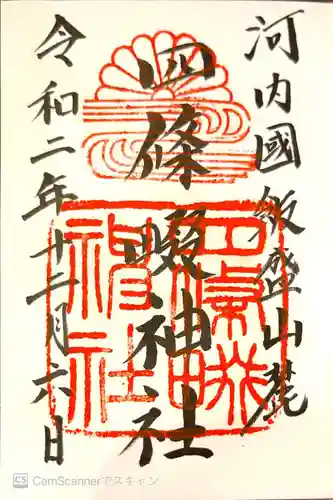 河内國飯盛山麓
四條畷神社
令和二年十二月六日
四條畷
神社
CS CamScannerでスキャン